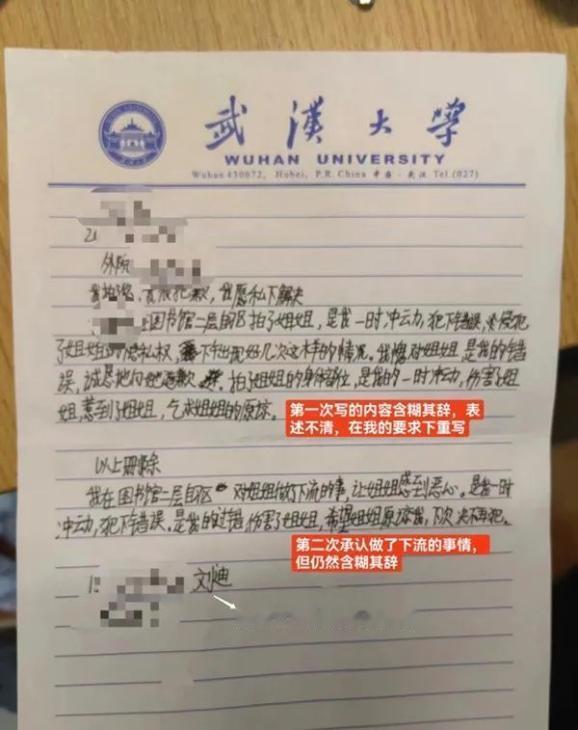 武漢大學
WUHAN UNIVERSITY
Wuhan 430072, Hubei, P.R. China 中国·武汉 Tel.(027)
外院
我愿私下解决
在图书馆二层自区拍了姐姐，是我一时冲动，犯下错误，侵犯
了姐姐的隐私权，下午出现好几次这样的情况。我愧对姐姐，是我的错
误，诚恳地向她道歉，拍了姐姐的身体部位，是我的一时冲动，伤害了姐
姐，惹到了姐姐，乞求姐姐的原谅。
第一次写的内容含糊其辞，表
述不清，在我的要求下重写
以上删除
我在图书馆二层自区对姐姐做了下流的事，让姐姐感到恶心。是我一时
冲动，犯下错误。是我的过错伤害了姐姐，希望姐姐原谅我，下次决不再犯。
第二次承认做了下流的事情，
但仍然含糊其辞